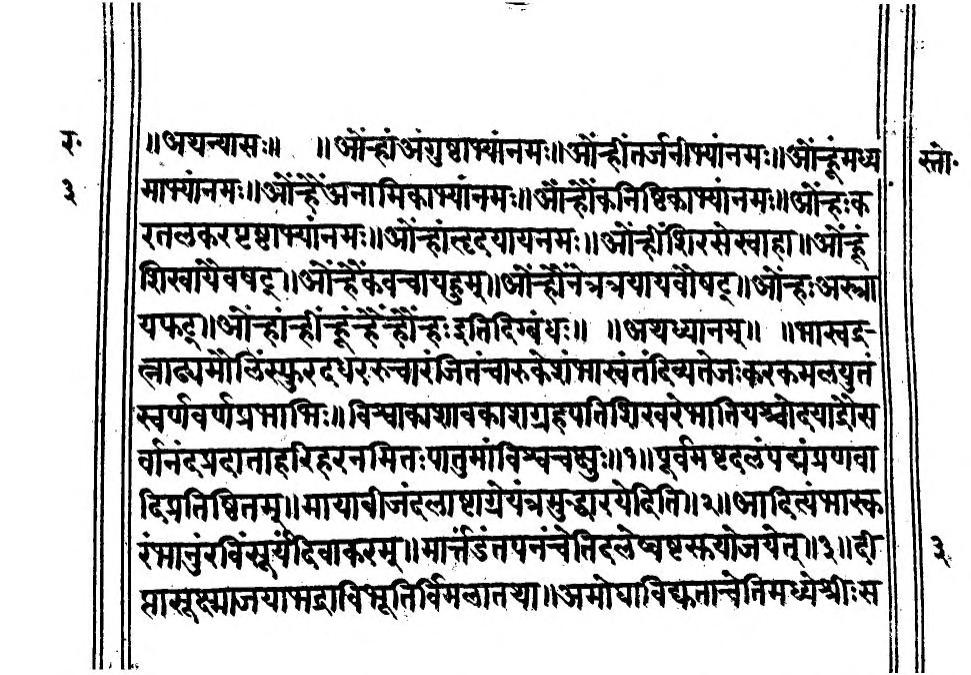 र॰
३
॥अथन्यासः॥ ॥ओंह्रां अंगुष्ठाभ्यांनमः॥ओंह्रींतर्जनीभ्यांनमः॥ओंह्रूंमध्य
स्तो॰
माभ्यांनमः॥ओंह्रैंअनामिकाभ्यांनमः॥ओंह्रौंकनिष्ठिकाभ्यांनमः॥ओंह्रःक
रतलकरपृष्ठाभ्यांनमः॥ओंह्रांहृदयायनमः॥ओंह्रींशिरसेस्वाहा॥ओंह्रूं
शिखायैवषट्॥ओंह्रैंकवचायहुम्॥ओंह्रौंनेत्रत्रयायवौषट्॥ओंह्रःअस्त्रा
यफट्॥ओंह्रांह्रींह्रूंह्रैंह्रौंह्रःइतिदिग्बंधः॥ ॥अथध्यानम्॥ ॥भास्वद्र-
त्नाढ्यमौलिंस्फुरदधररुचारंजितंचारुकेशंभास्वंतंदिव्यतेजःकरकमलयुतं
स्वर्णवर्णप्रभाभिः॥विश्वाकाशावकाशग्रहपतिशिखरेभातियश्चोदयाद्रौस
र्वानंदप्रदाताहरिहरनमितःपातुमांविश्वचक्षुः॥१॥पूर्वमष्टदलंपद्मंप्रणवा
दिप्रतिष्ठितम्॥मायाबीजंदलाष्टाग्रेयंत्रमुद्धारयेदिति॥२॥आदित्यंभास्क
रंभानुंरविंसूर्यंदिवाकरम्॥मार्त्तंडंतपनंचेतिदलेष्वष्टसुयोजयेत्॥३॥दी
३
प्तासूक्ष्माजयाभद्राविभूतिर्विमलातथा॥अमोघाविद्युताचेतिमध्येश्रीःस